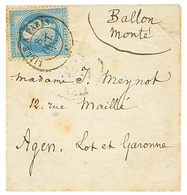 Ballon
Monté
PARIS
Madame J. Meynot
12. rue Maillé
Agen, Lot et Garonne